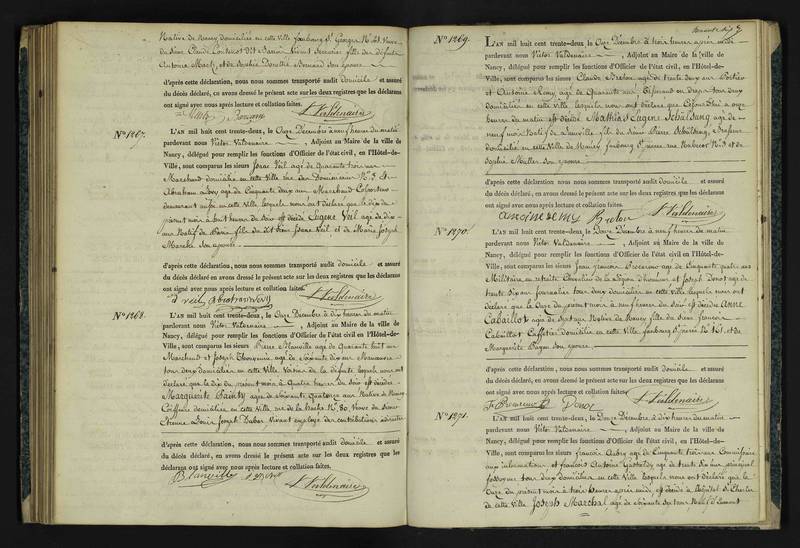 Native de Nancy domiciliée en cette Ville faubourg St. Georges
Antoine Martz, et de Sophie
d'après cette déclaration, nous nous sommes transporté audit domicile et assuré
du décès déclaré, en avons dressé le présent acte sur les deux registres que les déclarans
ont signé avec nous après lecture et collation faites.
V Valdenaire
No 1267.
L'AN mil huit cent trente-deux, le Onze Décembre à neuf heures du matin
pardevant nous Victor Valdenaire, Adjoint au Maire de la ville de
Nancy, délégué pour remplir les fonctions d'Officier de l'état civil, en l'Hôtel-de-
Ville, sont comparus les sieurs Isaac Veil agé de Quarante trois ans
Marchand domicilié en cette Ville rue des Dominicains
Abraham Lévy agé de Cinquante deux ans Marchand Colporteur
demeurant aussi en cette Ville lesquels nous ont déclaré que le dix du
présent mois à huit heures du soir est décédé Eugène Veil agé de dix
ans Natif de Paris fils du dit sieur Isaac Veil et de Marie Joseph
son épouse
d'après cette déclaration, nous nous sommes transporté audit domicile et assuré
du décès déclaré en avons dressé le présent acte sur les deux registres que les déclarans
ont signé avec nous après lecture et collation faites.
V Valdenaire
No 1268.
L'AN mil huit cent trente-deux, le Onze Décembre à dix heures du matin
pardevant nous Victor Valdenaire, Adjoint au Maire de la ville de
Nancy, délégué pour remplir les fonctions d'Officier de l'état civil, en l'Hôtel-de-
Ville, sont comparus les sieurs Pierre Blanville agé de Quarante huit ans
Marchand et Joseph agé de soixante dix ans Manœuvre
tous deux domiciliés en cette Ville, Voisins de la défunte lesquels nous ont
déclaré que le dix du présent mois à Quatre heures du soir est décédée
Marguerite Painty agée de soixante Quatorze ans Native de Nancy
Coiffeuse domiciliée en cette Ville rue de la hache No. 80, Veuve du sieur
Etienne Louis Joseph Dubar Vivant employé des contributions indirectes
d'après cette déclaration, nous nous sommes transporté audit domicile et assuré
du décès déclaré, en avons dressé le présent acte sur les deux registres que les
déclarans ont signé avec nous après lecture et collation faites.
Blanville
V Valdenaire
No 1269.
L'AN mil huit cent trente-deux, le Onze Décembre à trois heures après midi
pardevant nous Victor Valdenaire, Adjoint au Maire de la ville de
Nancy, délégué pour remplir les fonctions d'Officier de l'état civil, en l'Hôtel-de-
Ville, sont comparus les sieurs Claude Breton agé de trente deux ans Portier
et Antoine Remy agé de Quarante ans tous deux
domiciliés en cette ville lesquels nous ont déclaré que Cejourd'hui à onze
heures du matin est décédé Mathias Eugène Schaltsang agé de
neuf mois Natif de Luneville fils du sieur Pierre Schaltsang, Brasseur
domicilié en cette Ville de Nancy faubourg St pierre rue No. 3 et de
Sophie Muller son épouse
d'après cette déclaration, nous nous sommes transporté audit domicile et assuré
du décès déclaré, en avons dressé le présent acte sur les deux registres que les déclarans
ont signé avec nous après lecture et collation faites.
antoine remy Breton V Valdenaire
No 1270.
L'AN mil huit cent trente-deux, le Douze Décembre à neuf heures du matin
pardevant nous Victor Valdenaire, Adjoint au Maire de la ville de
Nancy, délégué pour remplir les fonctions d'Officier de l'état civil en l'Hôtel-de-
Ville, sont comparus les sieurs Jean francois agé de Cinquante quatre ans
Militaire en retraite Chevalier de la Légion d'honneur et Joseph Donot agé de
trente six ans journalier tous deux domiciliés en cette ville lesquels nous ont
déclaré que le Onze du présent mois à neuf heures du soir est décédée Anne
Caballot agée de sept ans Native de Nancy fille du sieur francois
Caballot Caffetier domicilié en cette Ville faubourg St pierre No. 161, et de
Marguerite son épouse
d'après cette déclaration, nous nous sommes transporté audit domicile et assuré
du décès déclaré, en avons dressé le présent acte sur les deux registres que les déclarans
ont signé avec nous après lecture et collation faites.
Donot V Valdenaire
No 1271.
L'AN mil huit cent trente-deux, le Douze Décembre à dix heures du matin
pardevant nous Victor Valdenaire, Adjoint au Maire de la ville de
Nancy, délégué pour remplir les fonctions d'Officier de l'état civil, en l'Hôtel-de-
Ville, sont comparus les sieurs francois Aubry agé de Cinquante trois ans Commissaire
aux inhumations et francois Antoine agé de trente six ans, principal
fossoyeur tous deux domiciliés en cette Ville lesquels nous ont déclaré que le
Onze du présent mois à trois heures après midi, est décédé à l'hôpital St Charles
de cette Ville Joseph Marchal agé de soixante dix ans Natif